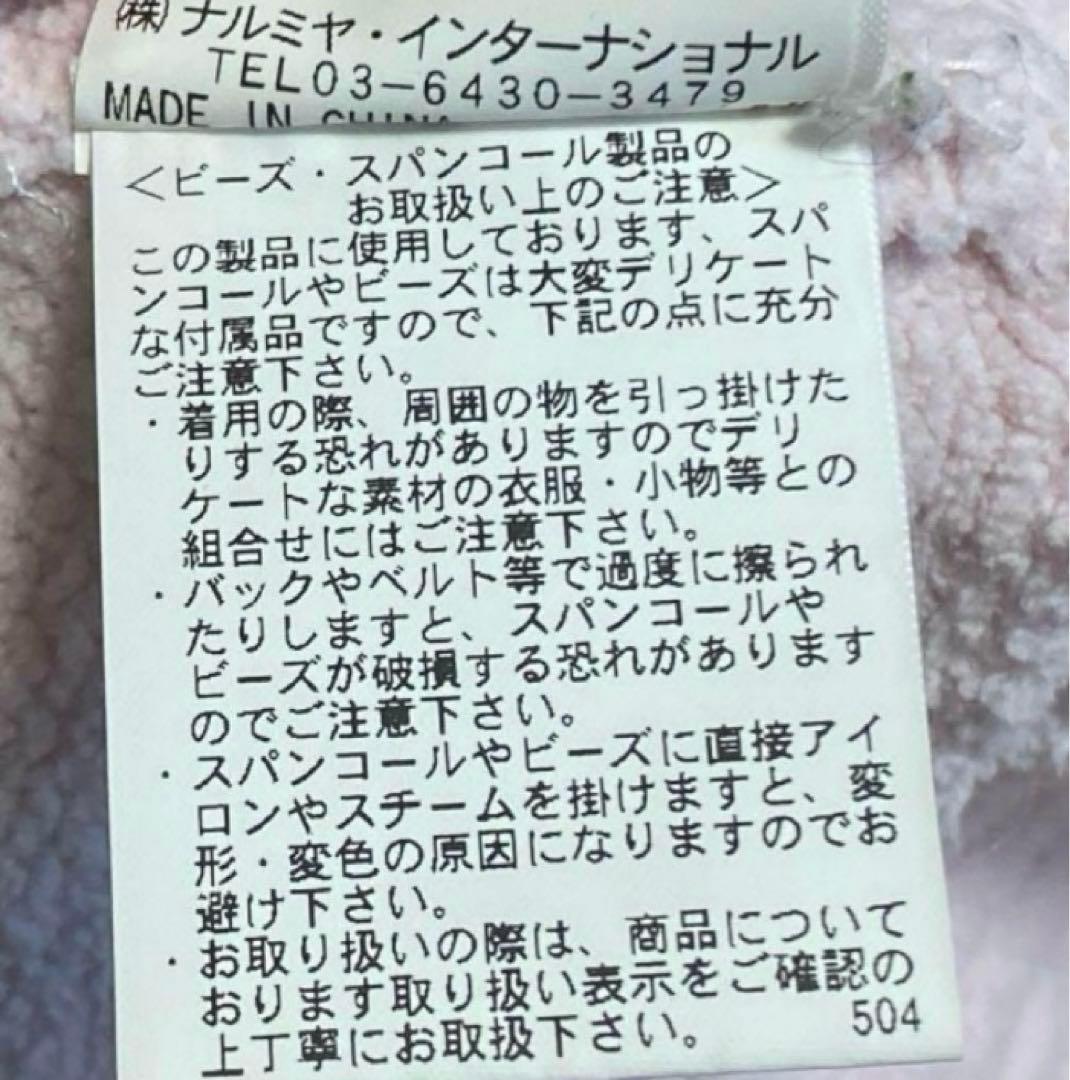 (株)ナルミヤ・インターナショナル
TEL03-6430-3479
MADE IN CHINA
<ビーズ・スパンコール製品の
お取扱い上のご注意>
この製品に使用しております、スパ
ンコールやビーズは大変デリケート
な付属品ですので、下記の点に充分
ご注意下さい。
・着用の際、周囲の物を引っ掛けた
りする恐れがありますのでデリ
ケートな素材の衣服・小物等との
組合せにはご注意下さい。
・バックやベルト等で過度に擦られ
たりしますと、スパンコールや
ビーズが破損する恐れがあります
のでご注意下さい。
・スパンコールやビーズに直接アイ
ロンやスチームを掛けますと、変
形・変色の原因になりますのでお
避け下さい。
・お取り扱いの際は、商品について
おります取り扱い表示をご確認の
上丁寧にお取扱下さい。
504